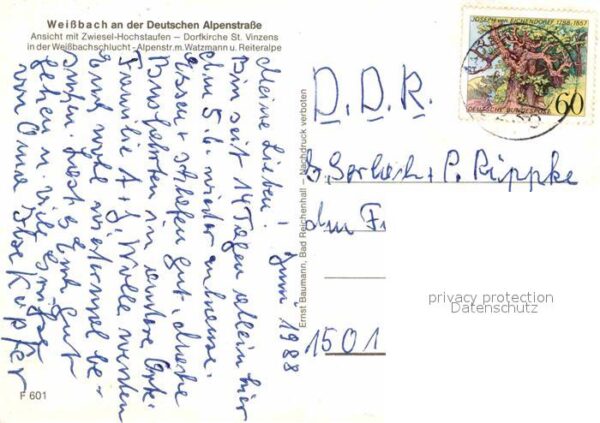 Weißbach an der Deutschen Alpenstraße
Ansicht mit Zwiesel-Hochstaufen – Dorfkirche St. Vinzens
in der Weißbachschlucht-Alpenstr.m.Watzmann u. Reiteralpe
Juni 1988
Meine Lieben!
Bin seit 14 Tagen allein hier
am 5.6. wieder zuhause.
Essen + schlafen gut, mache
Busfahrten in andere Orte.
Familie A + J. Wolle werden
Euch wohl wiedermal be-
suchen. Lasst es Euch gut
gehen u. viele Grüße
von Oma
F 601
Ernst Baumann, Bad Reichenhall – Nachdruck verboten
JOSEPH VON EICHENDORFF 1788-1857
DEUTSCHE BUNDESPOST
60
D. D. R.
+ P. Rüppke
1501
privacy protection
Datenschutz